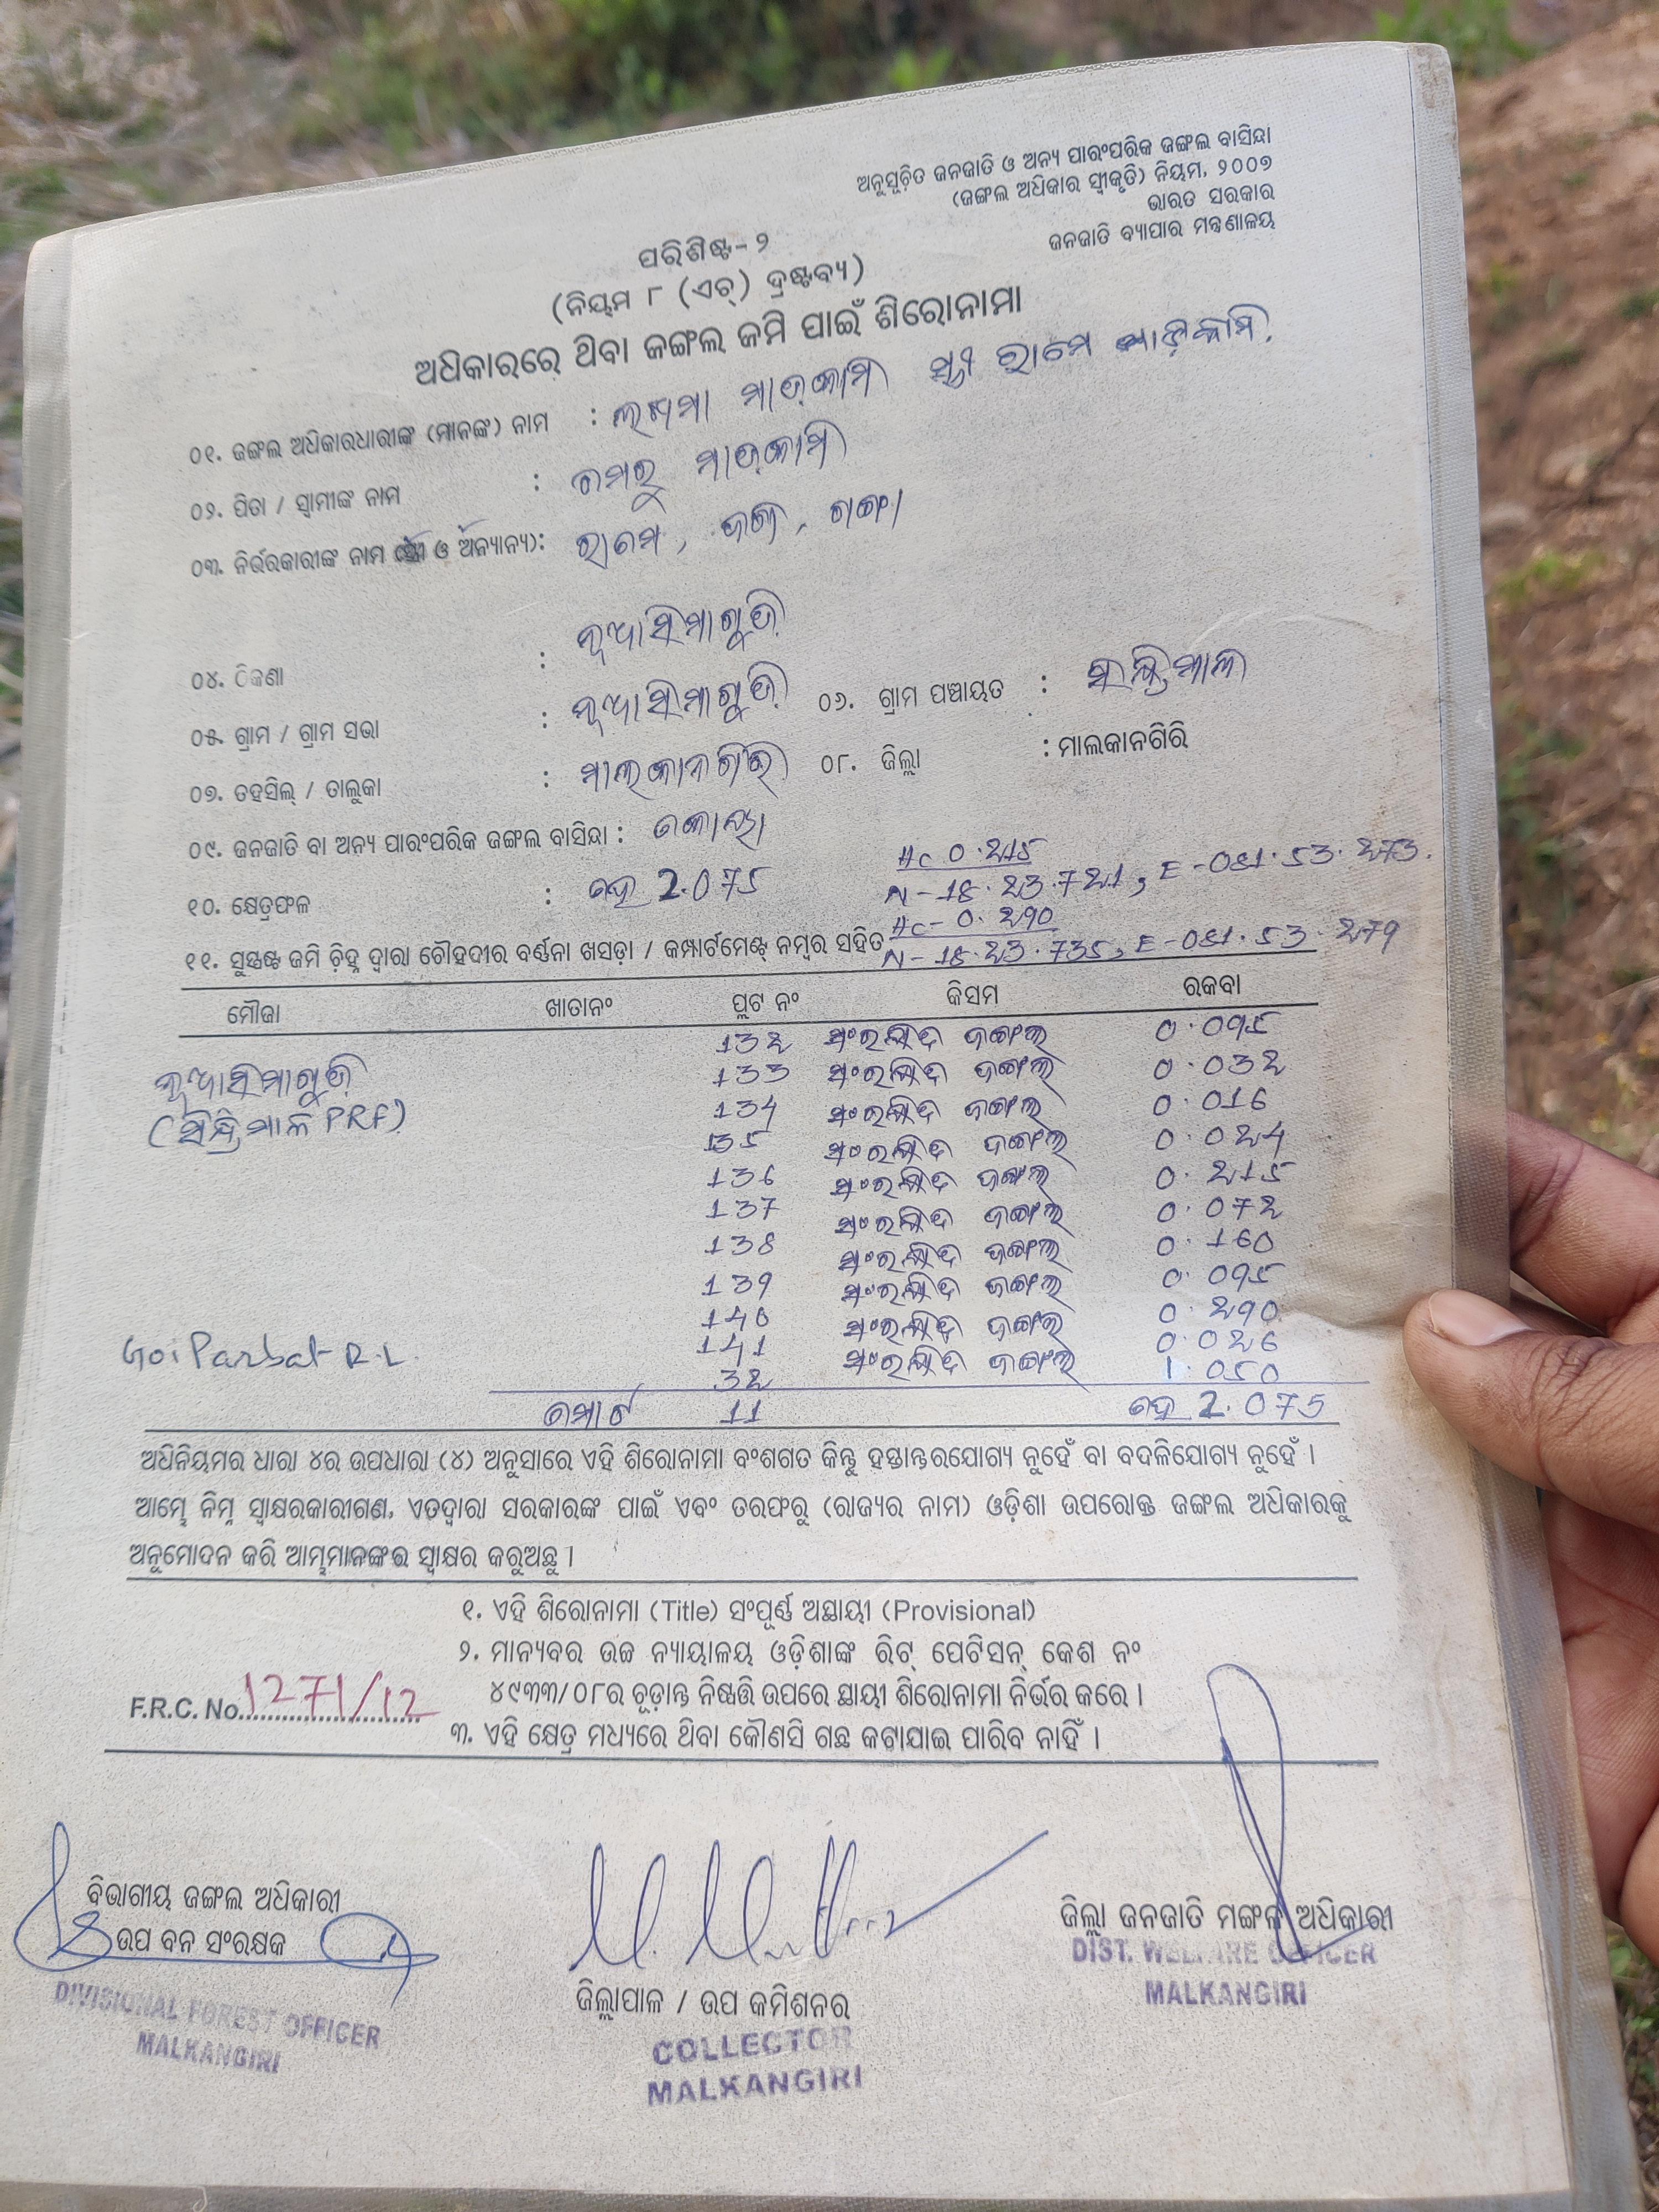 ଅନୁସୂଚିତ ଜନଜାତି ଓ ଅନ୍ୟ ପାରଂପରିକ ଜଙ୍ଗଲ ବାସିନ୍ଦା
(ଜଙ୍ଗଲ ଅଧିକାର ସ୍ୱୀକୃତି) ନିୟମ, ୨୦୦୭
ଭାରତ ସରକାର
ଜନଜାତି ବ୍ୟାପାର ମନ୍ତ୍ରଣାଳୟ
ପରିଶିଷ୍ଟ-୨
(ନିୟମ ୮ (ଏଚ୍) ଦ୍ରଷ୍ଟବ୍ୟ)
ଅଧିକାରରେ ଥିବା ଜଙ୍ଗଲ ଜମି ପାଇଁ ଶିରୋନାମା
୦୧. ଜଙ୍ଗଲ ଅଧିକାରଧାରୀଙ୍କ (ମାନଙ୍କ) ନାମ : ଲଖମା ମାଡ଼କାମି ସ୍ତ୍ରୀ ରାମେ ମାଡ଼କାମି.
୦୨. ପିତା / ସ୍ୱାମୀଙ୍କ ନାମ : ମାଡ଼କାମି
୦୩. ନିର୍ଭରକାରୀଙ୍କ ନାମ (ସ୍ତ୍ରୀ ଓ ଅନ୍ୟାନ୍ୟ): ରାମେ, ଗଙ୍ଗା
୦୪. ଠିକଣା : ନୂଆସିମାଗୁଡ଼ି
୦୫. ଗ୍ରାମ / ଗ୍ରାମ ସଭା : ନୂଆସିମାଗୁଡ଼ି ୦୬. ଗ୍ରାମ ପଞ୍ଚାୟତ :
୦୭. ତହସିଲ୍ / ତାଲୁକା : ମାଲକାନଗିରି ୦୮. ଜିଲ୍ଲା : ମାଲକାନଗିରି
୦୯. ଜନଜାତି ବା ଅନ୍ୟ ପାରଂପରିକ ଜଙ୍ଗଲ ବାସିନ୍ଦା : କୋୟା
Hc 0.215
୧୦. କ୍ଷେତ୍ରଫଳ : ହେ 2.075 N-18.23.721, E-081.53.273.
Hc-0.290
୧୧. ସୁସ୍ପଷ୍ଟ ଜମି ଚିହ୍ନ ଦ୍ୱାରା ଚୌହଦୀର ବର୍ଣ୍ଣନା ଖସଡ଼ା / କମ୍ପାର୍ଟମେଣ୍ଟ୍ ନମ୍ବର ସହିତ N-18.23.735, E-081.53.279
ମୌଜା ଖାତାନଂ ପ୍ଲଟ ନଂ କିସମ ରକବା
132 ସଂରକ୍ଷିତ ଜଙ୍ଗଲ 0.095
ନୂଆସିମାଗୁଡ଼ି 133 ସଂରକ୍ଷିତ ଜଙ୍ଗଲ 0.032
(ସିନ୍ଦ୍ରିମାଳ PRF) 134 ସଂରକ୍ଷିତ ଜଙ୍ଗଲ 0.016
135 ସଂରକ୍ଷିତ ଜଙ୍ଗଲ 0.024
136 ସଂରକ୍ଷିତ ଜଙ୍ଗଲ 0.215
137 ସଂରକ୍ଷିତ ଜଙ୍ଗଲ 0.072
138 ସଂରକ୍ଷିତ ଜଙ୍ଗଲ 0.160
139 ସଂରକ୍ଷିତ ଜଙ୍ଗଲ 0.095
140 ସଂରକ୍ଷିତ ଜଙ୍ଗଲ 0.290
141 ସଂରକ୍ଷିତ ଜଙ୍ଗଲ 0.026
Goi Parbat R.L. 32 1.050
ମୋଟ 11 ହେ 2.075
ଅଧିନିୟମର ଧାରା ୪ର ଉପଧାରା (୪) ଅନୁସାରେ ଏହି ଶିରୋନାମା ବଂଶଗତ କିନ୍ତୁ ହସ୍ତାନ୍ତରଯୋଗ୍ୟ ନୁହେଁ ବା ବଦଳିଯୋଗ୍ୟ ନୁହେଁ ।
ଆମ୍ଭେ ନିମ୍ନ ସ୍ୱାକ୍ଷରକାରୀଗଣ, ଏତଦ୍ୱାରା ସରକାରଙ୍କ ପାଇଁ ଏବଂ ତରଫରୁ (ରାଜ୍ୟର ନାମ) ଓଡ଼ିଶା ଉପରୋକ୍ତ ଜଙ୍ଗଲ ଅଧିକାରକୁ
ଅନୁମୋଦନ କରି ଆମ୍ଭମାନଙ୍କର ସ୍ୱାକ୍ଷର କରୁଅଛୁ ।
୧. ଏହି ଶିରୋନାମା (Title) ସଂପୂର୍ଣ୍ଣ ଅସ୍ଥାୟୀ (Provisional)
୨. ମାନ୍ୟବର ଉଚ୍ଚ ନ୍ୟାୟାଳୟ ଓଡ଼ିଶାଙ୍କ ରିଟ୍ ପେଟିସନ୍ କେଶ ନଂ
୪୯୩୩/୦୮ର ଚୂଡ଼ାନ୍ତ ନିଷ୍ପତ୍ତି ଉପରେ ସ୍ଥାୟୀ ଶିରୋନାମା ନିର୍ଭର କରେ ।
F.R.C. No. 1271/12
୩. ଏହି କ୍ଷେତ୍ର ମଧ୍ୟରେ ଥିବା କୌଣସି ଗଛ କଟାଯାଇ ପାରିବ ନାହିଁ ।
ବିଭାଗୀୟ ଜଙ୍ଗଲ ଅଧିକାରୀ
ଉପ ବନ ସଂରକ୍ଷକ
DIVISIONAL FOREST OFFICER
MALKANGIRI
ଜିଲ୍ଲାପାଳ / ଉପ କମିଶନର
COLLECTOR
MALKANGIRI
ଜିଲ୍ଲା ଜନଜାତି ମଙ୍ଗଳ ଅଧିକାରୀ
DIST. WELFARE OFFICER
MALKANGIRI